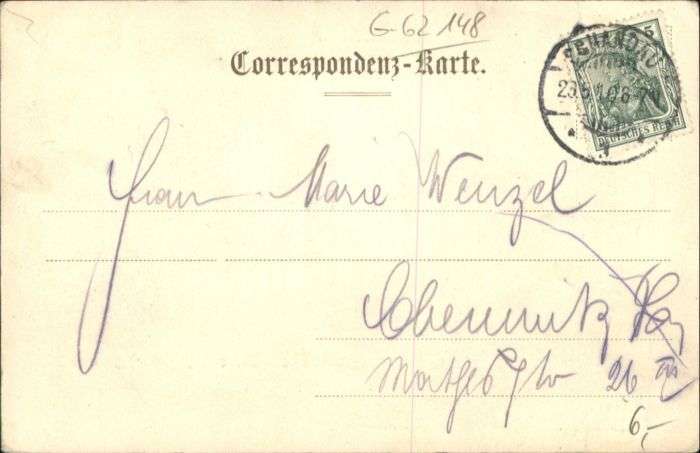 G-62 148
Correspondenz-Karte.
SCHANDAU
DEUTSCHES REICH
Frau Marie Wenzel
Chemnitz
26
6,-